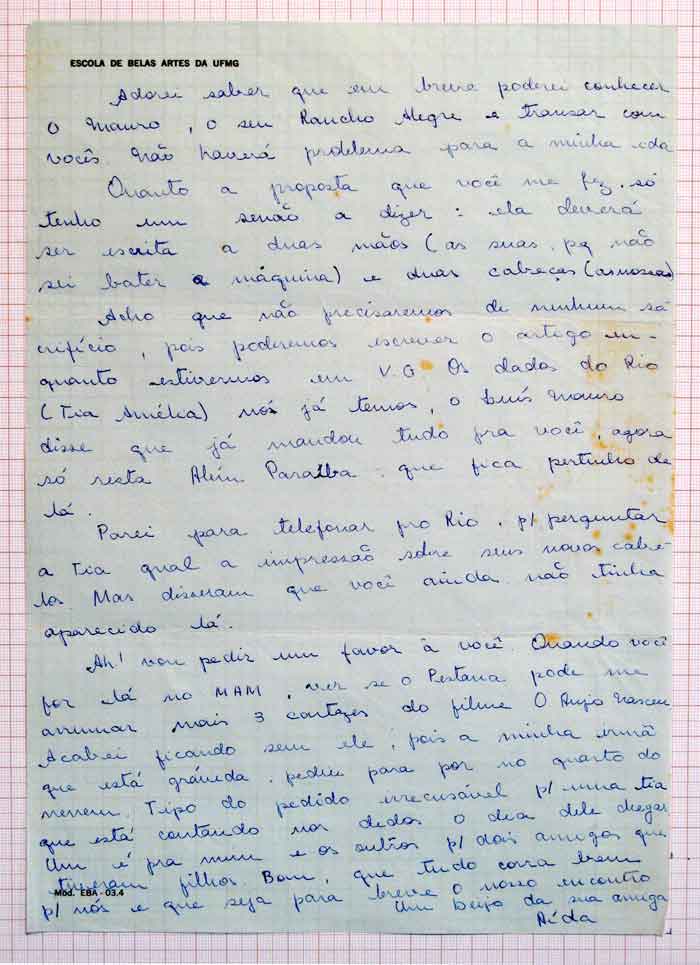 ESCOLA DE BELAS ARTES DA UFMG
Adorei saber que em breve poderei conhecer
o Mauro, o seu Rancho Alegre e transar com
vocês. Não haverá problema para a minha ida
Quanto a proposta que você me fez, só
tenho um senão a dizer: ela deverá
ser escrita a duas mãos (as suas, pq não
sei bater a máquina) e duas cabeças (as nossas)
Acho que não precisaremos de nenhum sa
crifício, pois poderemos escrever o artigo en-
quanto estivermos em V.G. Os dados do Rio
(Tia Amélia) nós já temos, o Luís Mauro
disse que já mandou tudo pra você, agora
só resta Além Paraíba que fica pertinho de
lá.
Parei para telefonar pro Rio, p/ perguntar
a tia qual a impressão sobre seus novos cabe
los. Mas disseram que você ainda não tinha
aparecido lá.
Ah! vou pedir um favor à você. Quando você
for lá no MAM, ver se o Pestana pode me
arrumar mais 3 cartazes do filme O Anjo Nasceu
Acabei ficando sem ele, pois a minha irmã
que está grávida, pediu para por no quarto do
nenem. Tipo do pedido irrecusável p/ uma tia
que está contando nos dedos o dia dele chegar
Um é pra mim e os outros p/ dois amigos que
tiveram filhos. Bom, que tudo corra bem
p/ nós e que seja para breve o nosso encontro
Mod. EBA - 03.4
Um beijo da sua amiga
Aída